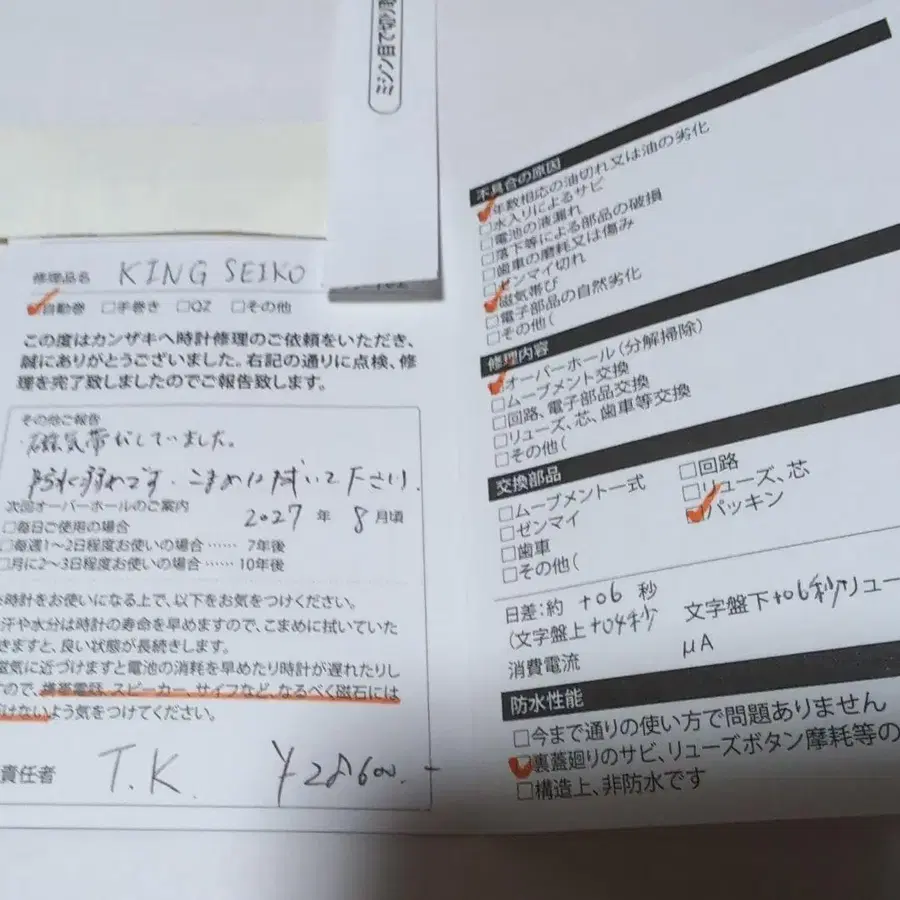 ミシン目で切り
修理品名 KING SEIKO
☑自動巻 □手巻き □QZ □その他
この度はカンザキへ時計修理のご依頼をいただき、
誠にありがとうございました。右記の通りに点検、修
理を完了致しましたのでご報告致します。
その他ご報告
・磁気帯びしていました。
防水弱めです。こまめに拭いて下さい。
次回オーバーホールのご案内
2027 年 8 月頃
□毎日ご使用の場合
□毎週1～2日程度お使いの場合…… 7年後
□月に2～3日程度お使いの場合…… 10年後
時計をお使いになる上で、以下をお気をつけください。
汗や水分は時計の寿命を早めますので、こまめに拭いていた
きますと、良い状態が長続きします。
磁気に近づけますと電池の消耗を早めたり時計が遅れたりし
すので、携帯電話、スピーカー、サイフなど、なるべく磁石には
けないよう気をつけてください。
責任者 T.K. ¥28600.-
不具合の原因
☑年数相応の油切れ又は油の劣化
□水入りによるサビ
□電池の液漏れ
□落下等による部品の破損
□歯車の磨耗又は傷み
□ゼンマイ切れ
☑磁気帯び
□電子部品の自然劣化
□その他(
修理内容
☑オーバーホール(分解掃除)
□ムーブメント交換
□回路、電子部品交換
□リューズ、芯、歯車等交換
□その他(
交換部品
□ムーブメント一式 □回路
□ゼンマイ □リューズ、芯
□歯車 ☑パッキン
□その他(
日差:約 +06 秒
(文字盤上+04秒 文字盤下+06秒リュー
消費電流 μA
防水性能
□今まで通りの使い方で問題ありません
☑裏蓋廻りのサビ、リューズボタン摩耗等の
□構造上、非防水です